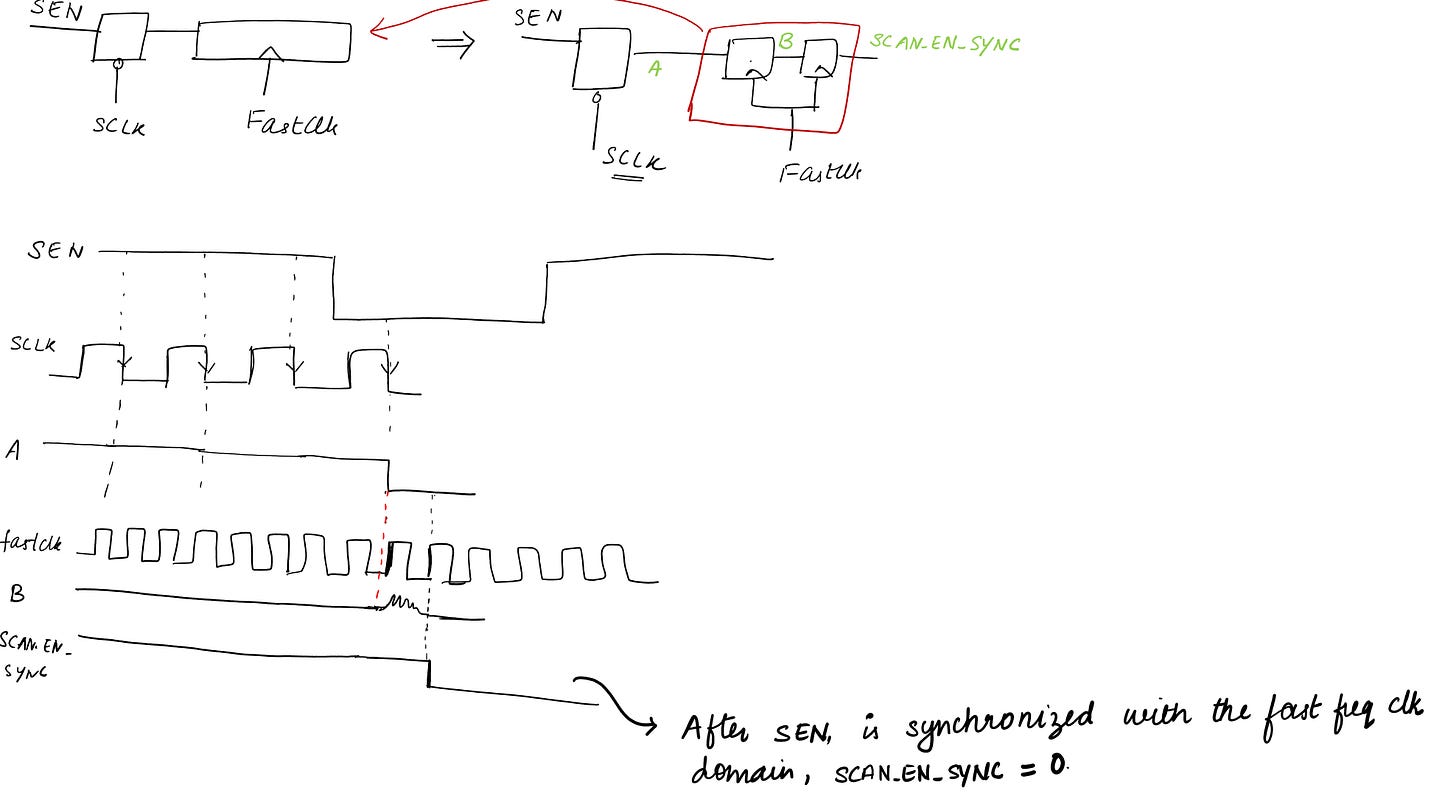 SEN
SCLK
FastClk
SEN
A
B
SCAN_EN_SYNC
SCLK
FastClk
SEN
SCLK
A
fastclk
B
SCAN_EN_
SYNC
After SEN, is synchronized with the fast freq clk
domain, SCAN_EN_SYNC = 0.